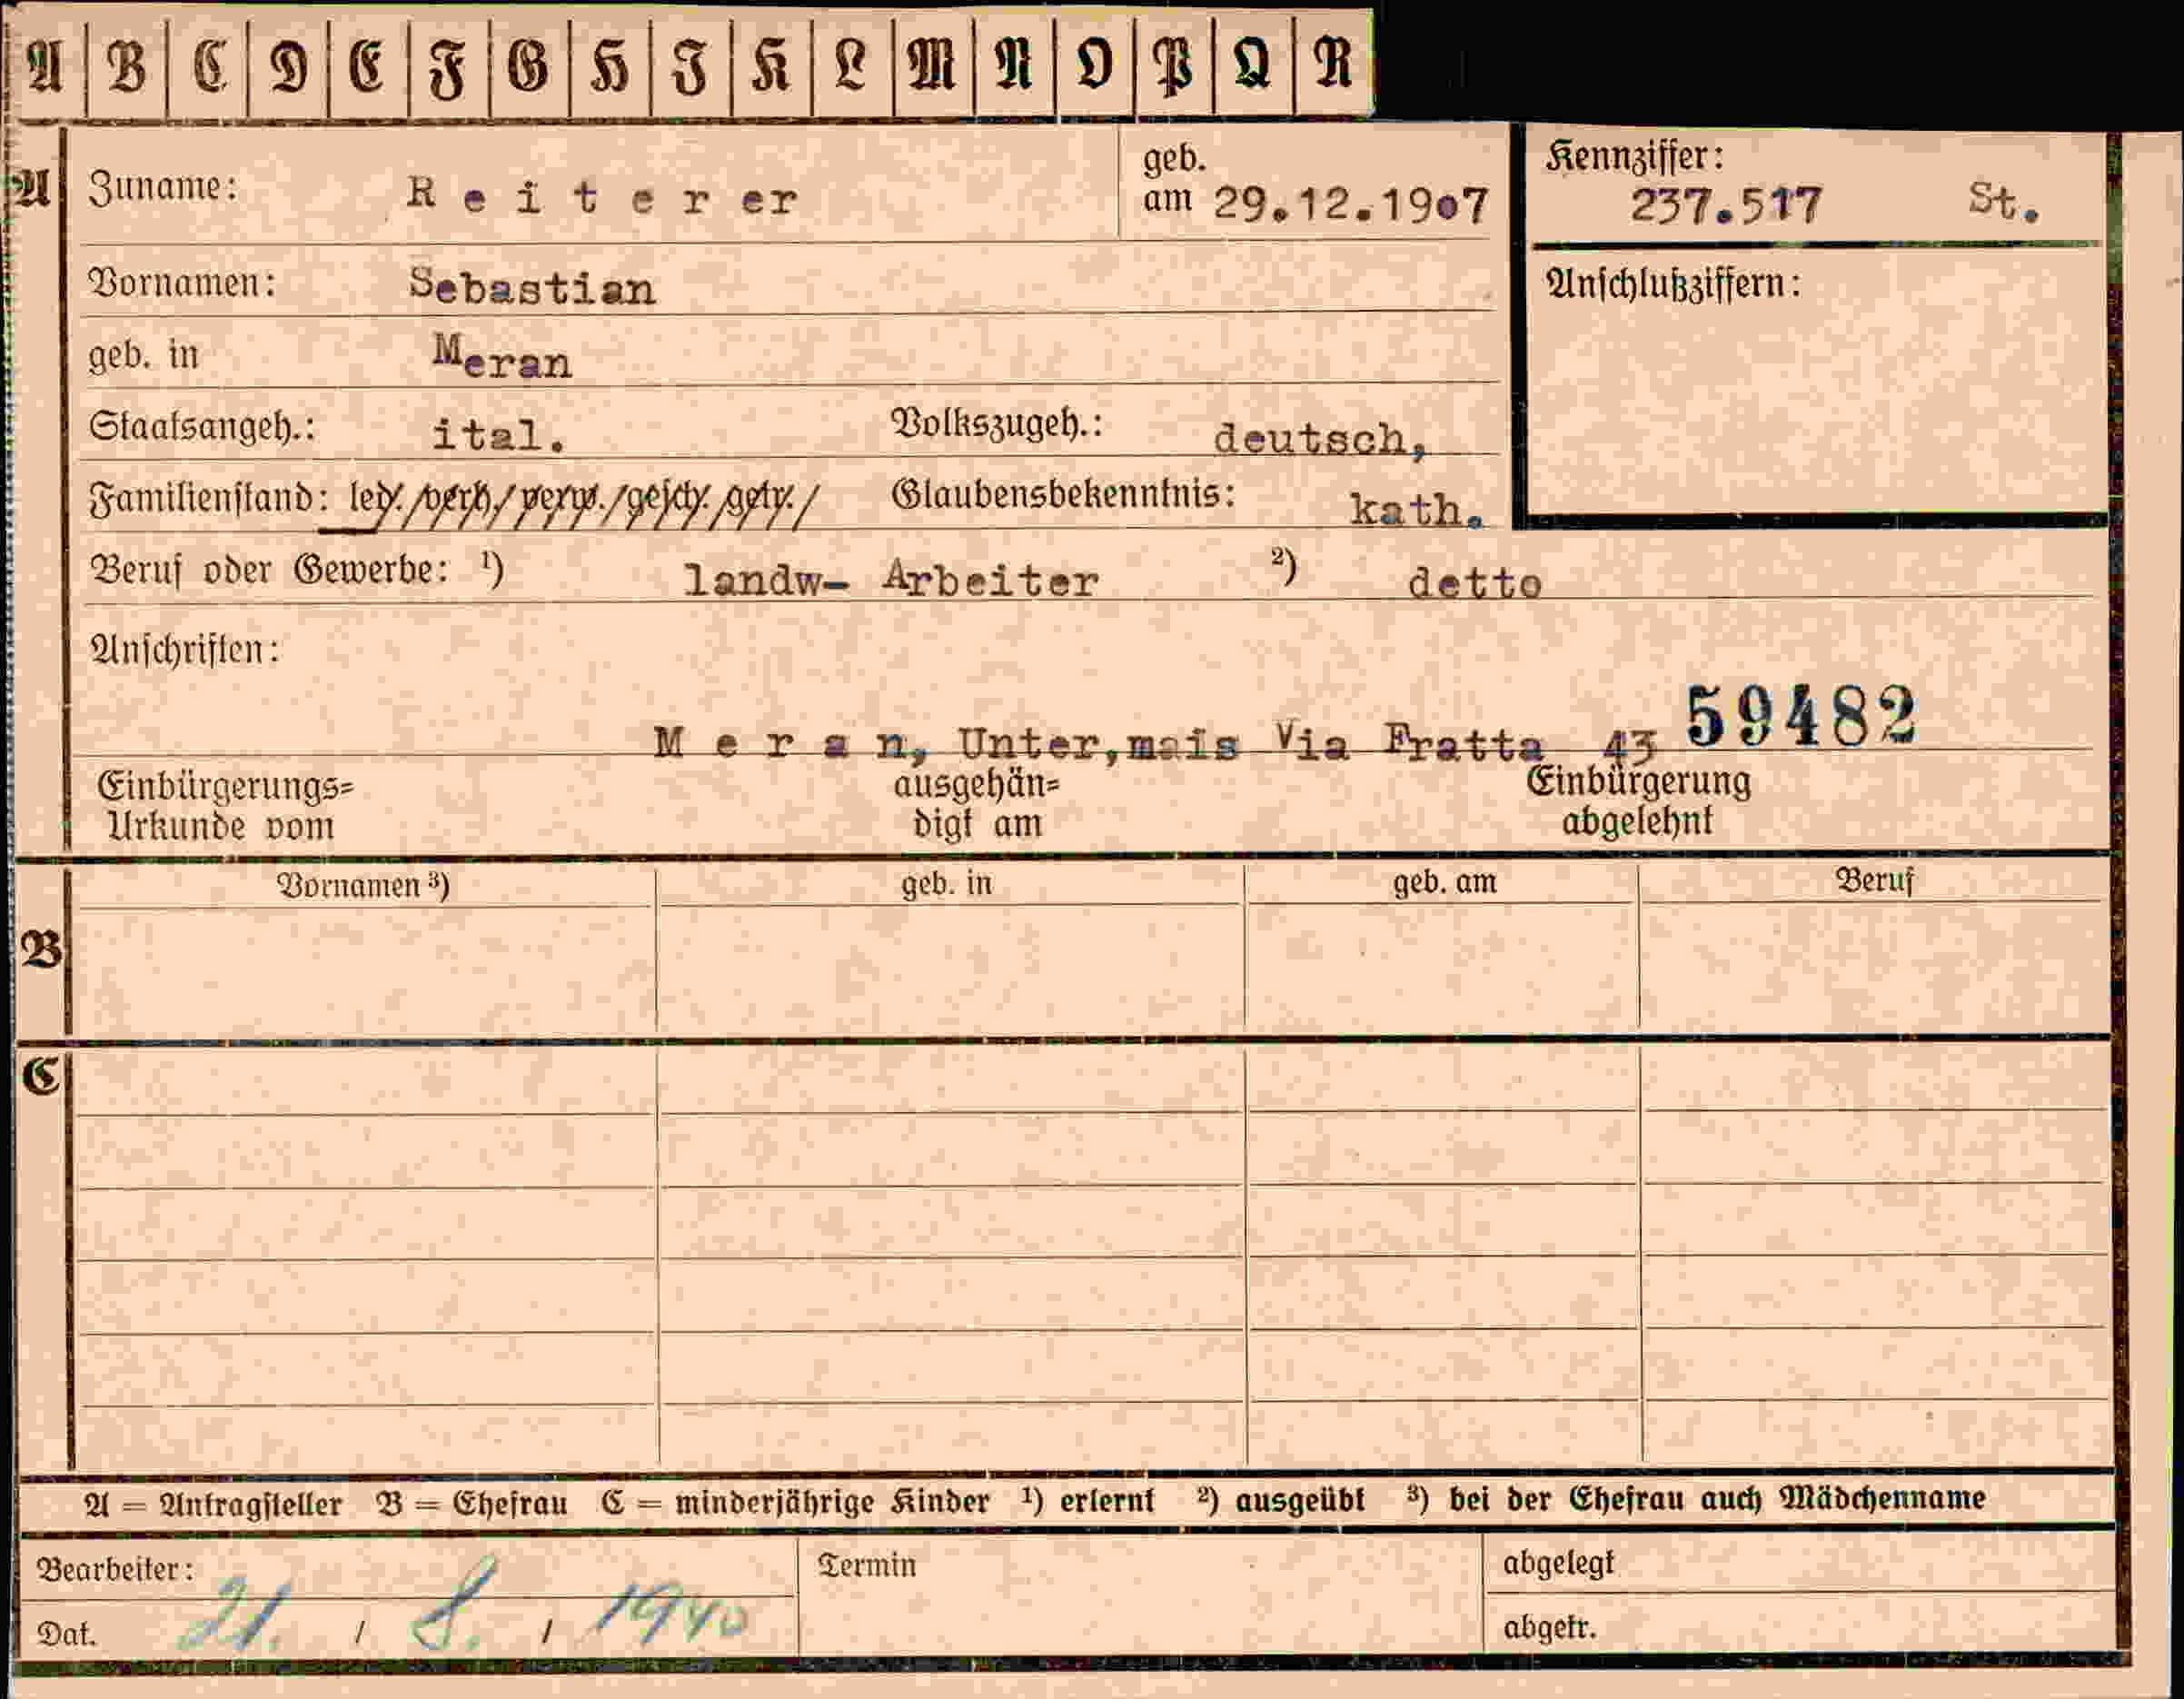 A B C D E F G H I K L M N O P Q R
A Zuname: R e i t e r er geb. am 29.12.1907 Kennziffer: 237.517 St.
Vornamen: Sebastian Anschlußziffern:
geb. in Meran
Staatsangeh.: ital. Volkszugeh.: deutsch,
Familienstand: led./verh./verw./gesch./getr./ Glaubensbekenntnis: kath.
Beruf oder Gewerbe: ¹) landw- Arbeiter ²) detto
Anschriften:
M e r a n, Unter,mais Via Fratta 43 59482
Einbürgerungs= Urkunde vom ausgehän= digt am Einbürgerung abgelehnt
Vornamen ³) geb. in geb. am Beruf
B
C
A = Antragsteller B = Ehefrau C = minderjährige Kinder ¹) erlernt ²) ausgeübt ³) bei der Ehefrau auch Mädchenname
Bearbeiter: Termin abgelegt
Dat. 21. / 8. / 1940 abgetr.